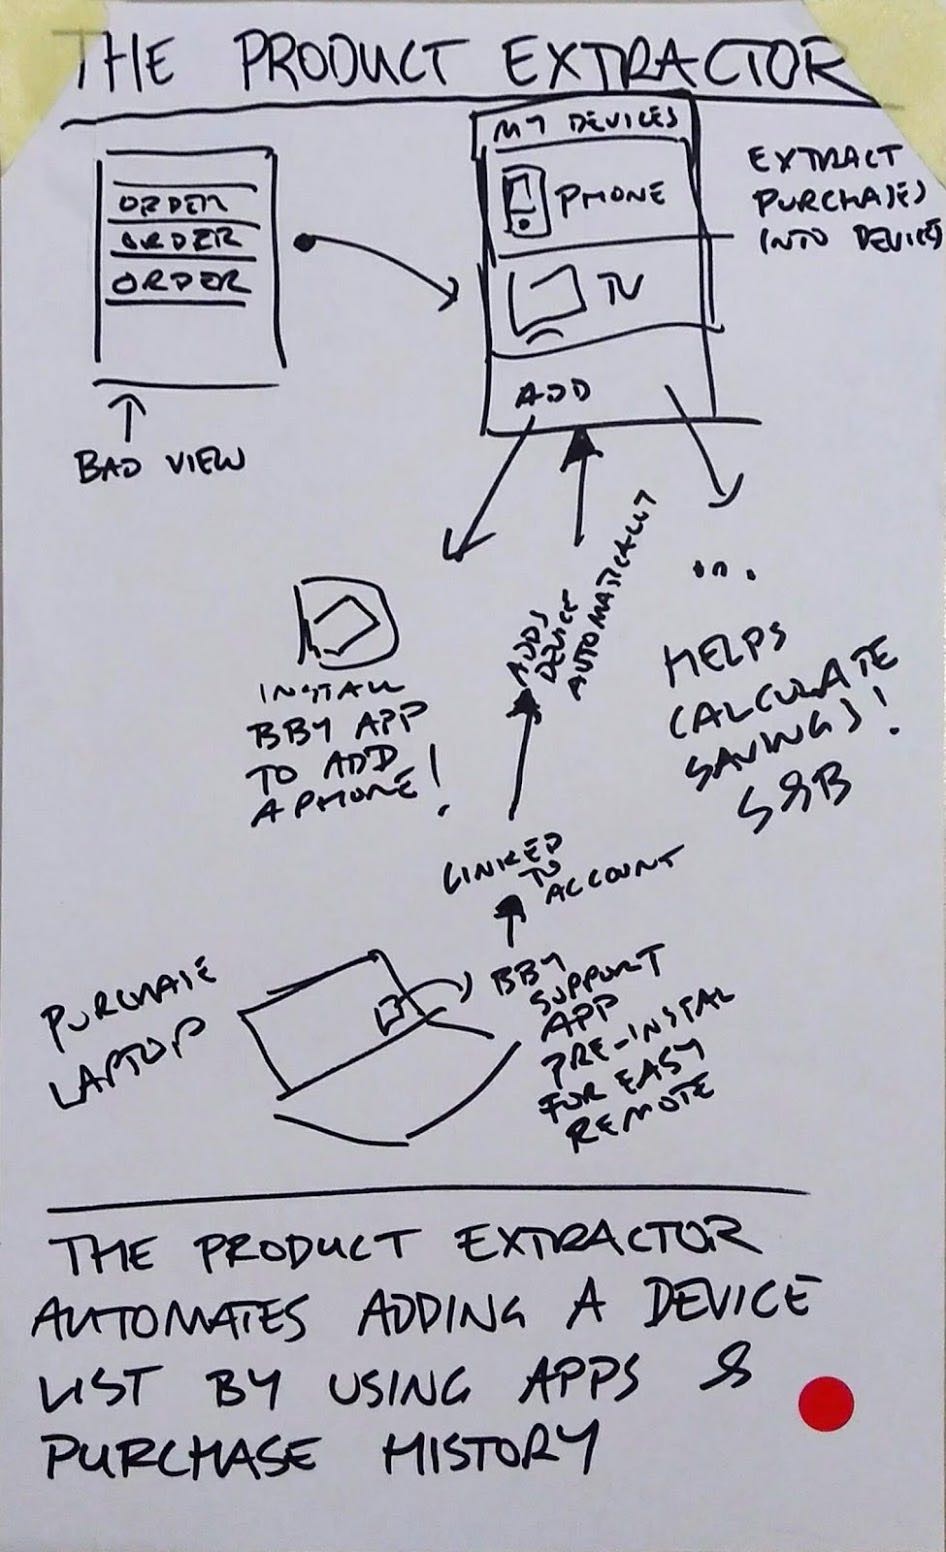 THE PRODUCT EXTRACTOR
MY DEVICES
PHONE
TV
ADD
ORDER
ORDER
ORDER
BAD VIEW
EXTRACT
PURCHASES
INTO DEVICES
INSTALL
BBY APP
TO ADD
A PHONE!
ADDS
DEVICE
AUTOMATICALLY
...
HELPS
CALCULATE
SAVINGS!
LINKED
TO
ACCOUNT
PURCHASE
LAPTOP
BBY
SUPPORT
APP
PRE-INSTAL
FOR EASY
REMOTE
THE PRODUCT EXTRACTOR
AUTOMATES ADDING A DEVICE
LIST BY USING APPS &
PURCHASE HISTORY